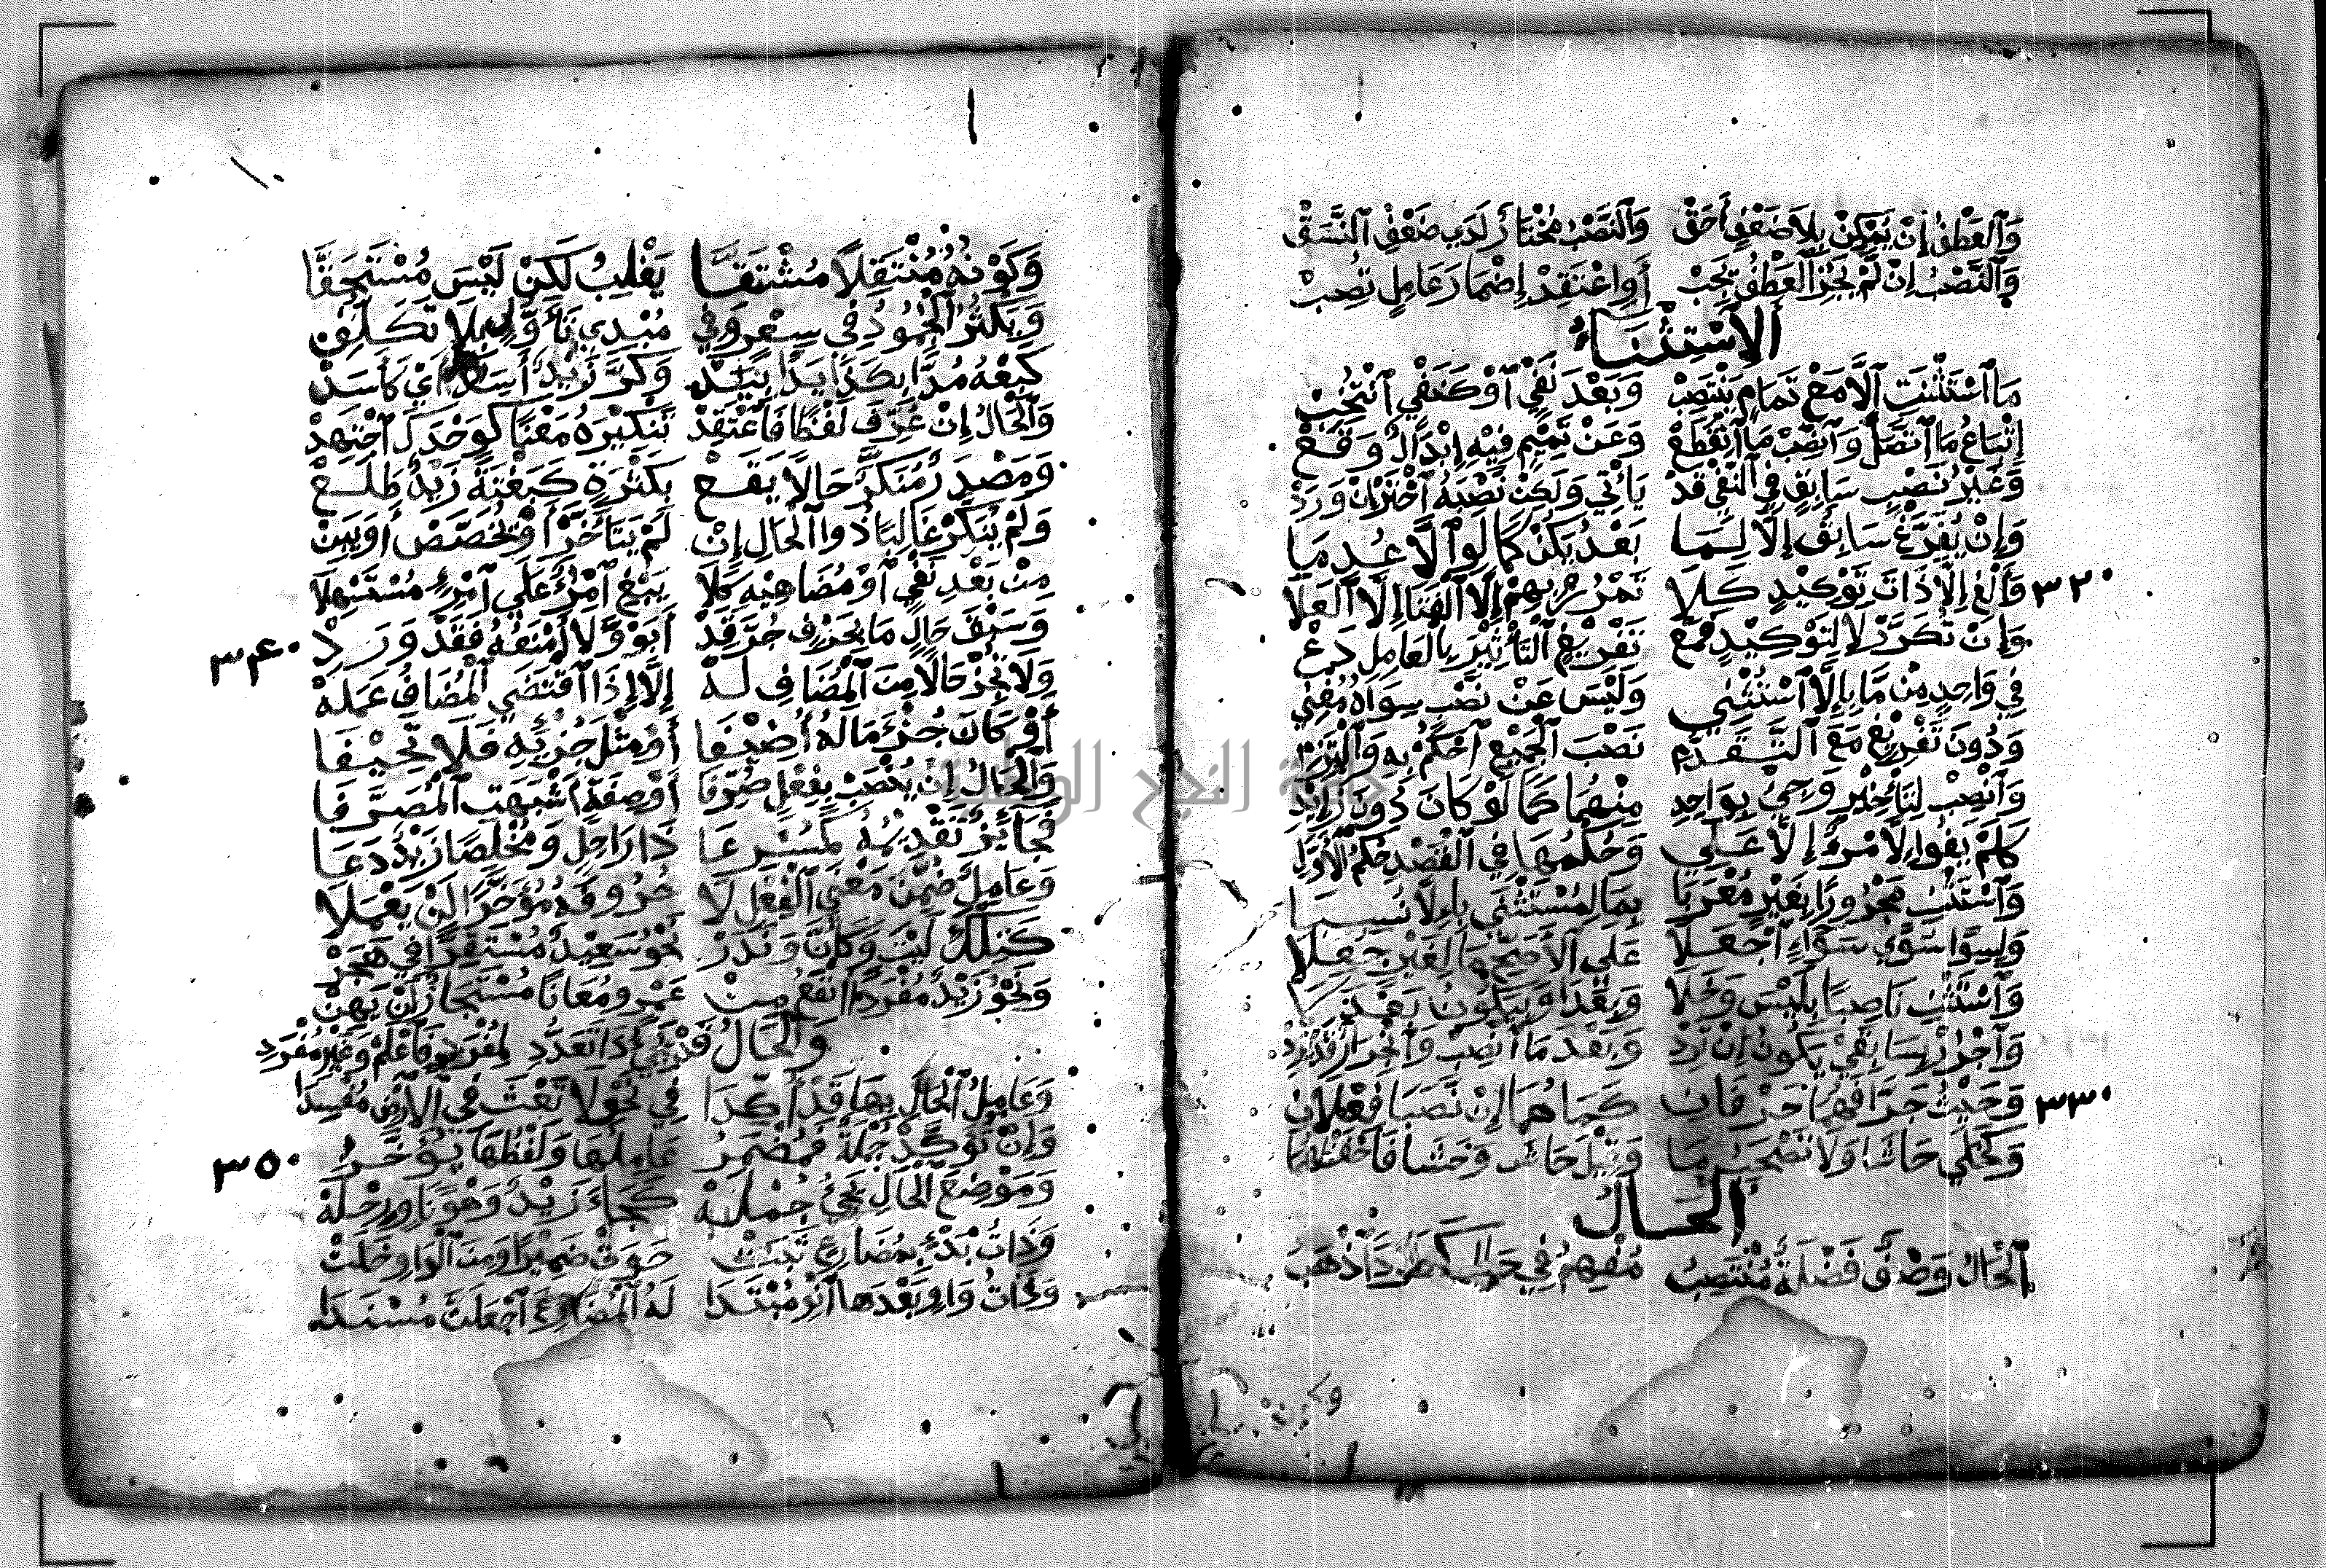 وَالْعَطْفُ إِنْ يُمْكِنْ بِلَا ضَعْفٍ أَحَقّْ وَالنَّصْبُ مُخْتَارٌ لَدَى ضَعْفِ النَّسَقْ
وَالنَّصْبُ إِنْ لَمْ يَجُزِ الْعَطْفُ يَجِبْ أَوِ اعْتَقِدْ إِضْمَارَ عَامِلٍ تُصِبْ
الِاسْتِثْنَاءُ
مَا اسْتَثْنَتِ الَّا مَعْ تَمَامٍ يَنْتَصِبْ وَبَعْدَ نَفْيٍ أَوْ كَنَفْيٍ انْتُخِبْ
إِتْبَاعُ مَا اتَّصَلَ وَانْصِبْ مَا انْقَطَعْ وَعَنْ تَمِيمٍ فِيهِ إِبْدَالٌ وَقَعْ
وَغَيْرُ نَصْبِ سَابِقٍ فِي النَّفْيِ قَدْ يَأْتِي وَلَكِنْ نَصْبَهُ اخْتَرْ إِنْ وَرَدْ
وَإِنْ يُفَرَّغْ سَابِقٌ إِلَّا لِمَا بَعْدُ يَكُنْ كَمَا لَوِ الَّا عُدِمَا
وَأَلْغِ إِلَّا ذَاتَ تَوْكِيدٍ كَلَا تَمْرُرْ بِهِمْ إِلَّا الْفَتَى إِلَّا الْعَلَا ٣٢٠
وَإِنْ تُكَرَّرْ لَا لِتَوْكِيدٍ فَمَعْ تَفْرِيغٍ التَّأْثِيرَ بِالْعَامِلِ دَعْ
فِي وَاحِدٍ مِنْ مَا بِإِلَّا اسْتُثْنِي وَلَيْسَ عَنْ نَصْبِ سِوَاهُ مُغْنِي
وَدُونَ تَفْرِيغٍ مَعَ التَّقَدُّمِ نَصْبَ الْجَمِيعِ احْكُمْ بِهِ وَالْتَزِمِ
وَانْصِبْ لِتَأْخِيرٍ وَجِئْ بِوَاحِدِ مِنْهَا كَمَا لَوْ كَانَ دُونَ زَائِدِ
كَلَمْ يَفُوا إِلَّا امْرُؤٌ إِلَّا عَلِي وَحُكْمُهَا فِي الْقَصْدِ حُكْمُ الْأَوَّلِ
وَاسْتَثْنِ مَجْرُورًا بِغَيْرٍ مُعْرَبَا بِمَا لِمُسْتَثْنًى بِإِلَّا نُسِبَا
وَلِسِوًى سُوًى سَوَاءٍ اجْعَلَا عَلَى الْأَصَحِّ مَا لِغَيْرٍ جُعِلَا
وَاسْتَثْنِ نَاصِبًا بِلَيْسَ وَخَلَا وَبِعَدَا وَبِيَكُونُ بَعْدَ لَا
وَاجْرُرْ بِسَابِقَيْ يَكُونُ إِنْ تُرِدْ وَبَعْدَ مَا انْصِبْ وَانْجِرَارٌ قَدْ يَرِدْ
وَحَيْثُ جَرَّا فَهُمَا حَرْفَانِ كَمَا هُمَا إِنْ نَصَبَا فِعْلَانِ ٣٣٠
وَكَخَلَى حَاشَا وَلَا تَصْحَبُ مَا وَقِيلَ حَاشَ وَحَشَا فَاحْفَظْهُمَا
الْحَالُ
الْحَالُ وَصْفٌ فَضْلَةٌ مُنْتَصِبُ مُفْهِمُ فِي حَالِ كَفَرْدًا أَذْهَبُ
وَكَوْنُهُ مُنْتَقِلًا مُشْتَقَّا يَغْلِبُ لَكِنْ لَيْسَ مُسْتَحَقَّا
وَيَكْثُرُ الْجُمُودُ فِي سِعْرٍ وَفِي مُبْدِي تَأَوُّلٍ بِلَا تَكَلُّفِ
كَبِعْهُ مُدًّا بِكَذَا يَدًا بِيَدْ وَكَرَّ زَيْدٌ أَسَدًا أَيْ كَأَسَدْ
وَالْحَالُ إِنْ عُرِّفَ لَفْظًا فَاعْتَقِدْ تَنْكِيرَهُ مَعْنًى كَوَحْدَكَ اجْتَهِدْ
وَمَصْدَرٌ مُنَكَّرٌ حَالًا يَقَعْ بِكَثْرَةٍ كَبَغْتَةً زَيْدٌ طَلَعْ
وَلَمْ يُنَكَّرْ غَالِبًا ذُو الْحَالِ إِنْ لَمْ يَتَأَخَّرْ أَوْ يُخَصَّصْ أَوْ يَبِنْ
مِنْ بَعْدِ نَفْيٍ أَوْ مُضَاهِيهِ كَلَا يَبْغِ امْرُؤٌ عَلَى امْرِئٍ مُسْتَسْهِلَا
وَسَبْقَ حَالٍ مَا بِحَرْفٍ جُرَّ قَدْ أَبَوْا وَلَا أَمْنَعُهُ فَقَدْ وَرَدْ ٣٤٠
وَلَا تُجِزْ حَالًا مِنَ الْمُضَافِ لَهْ إِلَّا إِذَا اقْتَضَى الْمُضَافُ عَمَلَهْ
أَوْ كَانَ جُزْءَ مَا لَهُ أُضِيفَا أَوْ مِثْلَ جُزْئِهِ فَلَا تَحِيفَا
وَالْحَالُ إِنْ يُنْصَبْ بِفِعْلٍ صُرِّفَا أَوْ صِفَةٍ أَشْبَهَتِ الْمُصَرَّفَا
فَجَائِزٌ تَقْدِيمُهُ كَمُسْرِعَا ذَا رَاحِلٌ وَمُخْلِصًا زَيْدٌ دَعَا
وَعَامِلٌ ضُمِّنَ مَعْنَى الْفِعْلِ لَا حُرُوفَهُ مُؤَخَّرًا لَنْ يَعْمَلَا
كَتِلْكَ لَيْتَ وَكَأَنَّ وَنَدَرْ نَحْوُ سَعِيدٌ مُسْتَقِرًّا فِي هَجَرْ
وَنَحْوُ زَيْدٌ مُفْرَدًا أَنْفَعُ مِنْ عَمْرٍو مُعَانًا مُسْتَجَازٌ لَنْ يَهِنْ
وَالْحَالُ قَدْ يَجِيءُ ذَا تَعَدُّدِ لِمُفْرَدٍ فَاعْلَمْ وَغَيْرِ مُفْرَدِ
وَعَامِلُ الْحَالِ بِهَا قَدْ أُكِّدَا فِي نَحْوِ لَا تَعْثَ فِي الْأَرْضِ مُفْسِدَا
وَإِنْ تُؤَكِّدْ جُمْلَةً فَمُضْمَرُ عَامِلُهَا وَلَفْظُهَا يُؤَخَّرُ ٣٥٠
وَمَوْضِعَ الْحَالِ تَجِيءُ جُمْلَهْ كَجَاءَ زَيْدٌ وَهْوَ نَاوٍ رِحْلَهْ
وَذَاتُ بَدْءٍ بِمُضَارِعٍ ثَبَتْ حَوَتْ ضَمِيرًا وَمِنَ الْوَاوِ خَلَتْ
وَذَاتُ وَاوٍ بَعْدَهَا انْوِ مُبْتَدَا لَهُ الْمُضَارِعَ اجْعَلَنَّ مُسْنَدَا
جامعة النجاح الوطنية